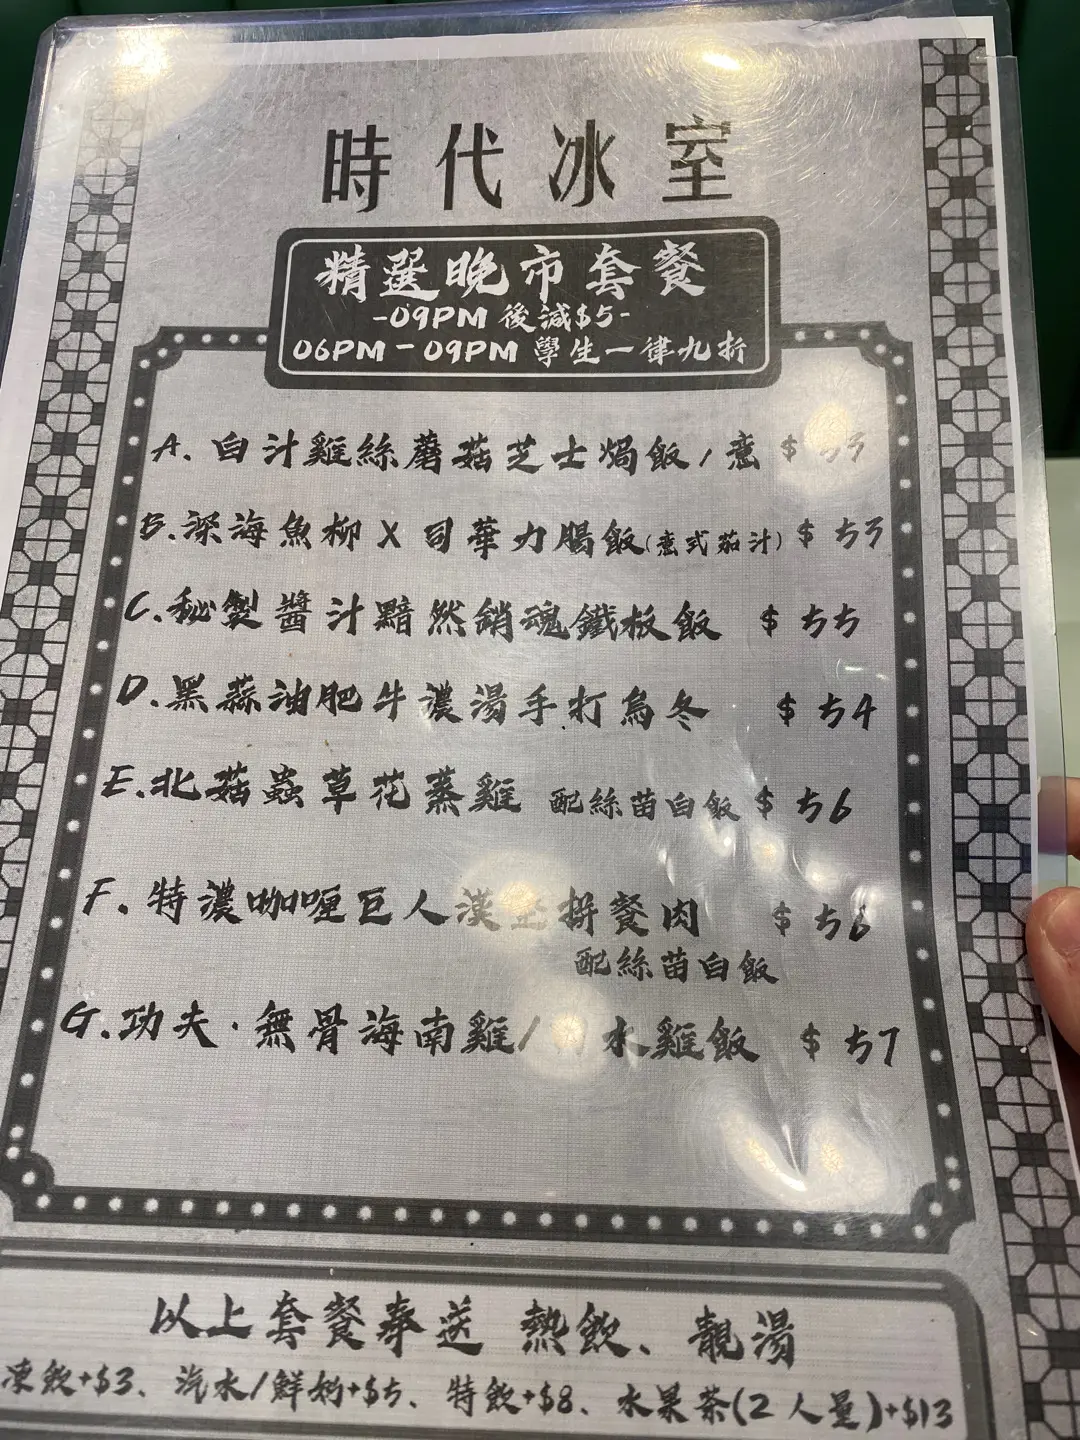 時代冰室
精選晚市套餐
-09PM 後減$5-
06PM-09PM 學生一律九折
A. 白汁雞絲蘑菇芝士焗飯/意 $
B. 深海魚柳 X 司華力腸飯(意式茄汁) $ 53
C. 秘製醬汁黯然銷魂鐵板飯 $ 55
D. 黑蒜油肥牛濃湯手打烏冬 $ 54
E. 北菇蟲草花蒸雞 配絲苗白飯 $ 56
F. 特濃咖喱巨人漢堡拼餐肉 $ 56
配絲苗白飯
G. 功夫·無骨海南雞/口水雞飯 $ 57
以上套餐奉送 熱飲、靚湯
凍飲+$3、汽水/鮮奶+$5、特飲+$8、水果茶(2人量)+$13